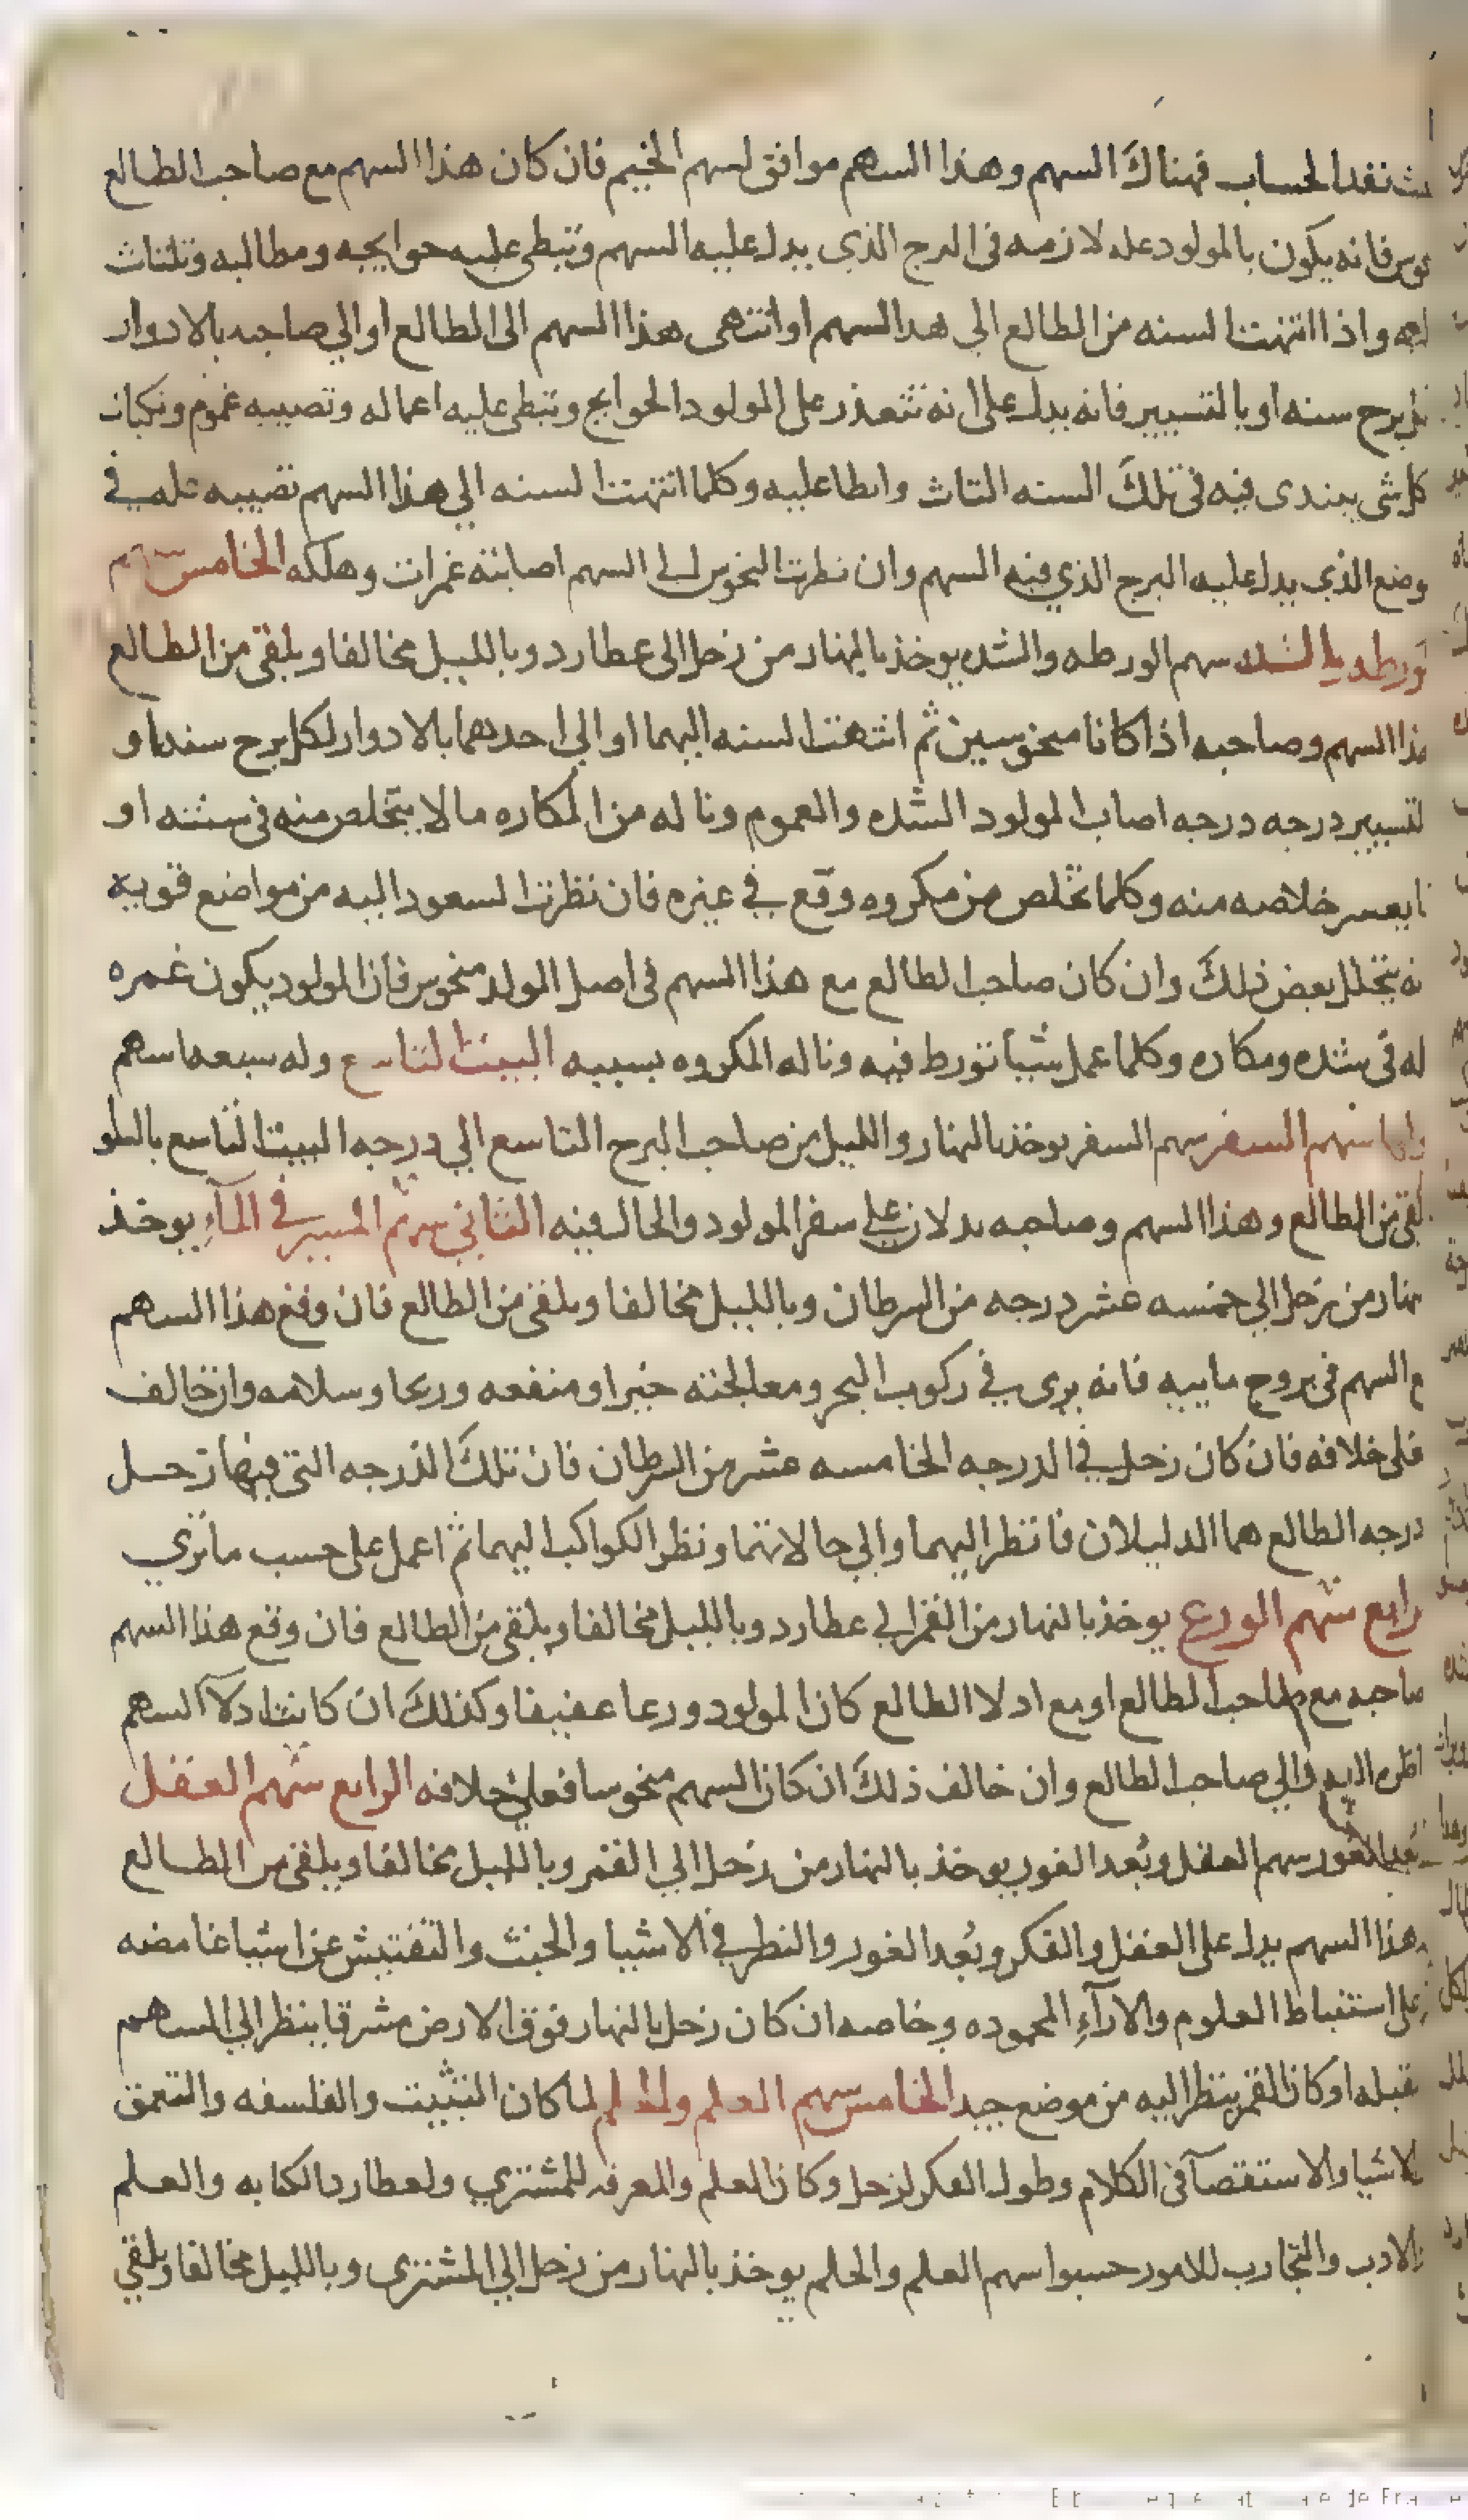 نفد الحساب فهناك السهم وهذا السهم موافق لسهم الخيم فان كان هذا السهم مع صاحب الطالع
فانه يكون بالمولود عله لازمه في البرج الذي يدل عليه السهم وتبطى عليه حوايجه ومطالبه وتلتاث
واذا انتهت السنه من الطالع الي هدا السهم او انتهى هذا السهم الى الطالع او الي صاحبه بالادوار
برح سنه او بالتسيير فانه يدل على انه تتعذر على المولود الحوايج وتبطى عليه اعماله وتصيبه غموم ونكبات
كل شي يبتدى فيه في تلك السنه التاث وابطا عليه وكلما انتهت السنه الي هذا السهم تصيبه عله في
الذي يدل عليه البرج الذي فيه السهم وان نطرت النحوس الى السهم اصابته غمرات وهلكه الخامس سهم
سهم الورطه والشده يوخذ بالنهار من زحل الى عطارد وبالليل مخالفا ويلقى من الطالع
السهم وصاحبه اذا كانا منحوسين ثم انتهت السنه اليهما او الي احدهما بالادوار لكل برح سنه او
لتسيير درجه درجه اصاب المولود الشده والعموم وناله من المكاره ما لا يتخلص منه في سنته او
يعسر خلاصه منه وكلما تخلص من مكروه وقع في غيره فان نظرت السعود اليه من مواضع قويه
بعض ذلك وان كان صاحب الطالع مع هذا السهم في اصل المولد منحوس فان المولود يكون عمره
له في شده ومكاره وكلما عمل شيا تورط فيه وناله المكروه بسببه البيت التاسع وله سبعه اسهم
سهم السفر سهم السفر يوخذ بالنهار والليل من صاحب البرج التاسع الي درجه البيت التاسع بالسوا
من الطالع وهذا السهم وصاحبه يدلان على سفر المولود والحال فيه الثاني سهم المسير في المآء يوخذ
من زحل الي خمسه عشر درجه من السرطان وبالليل مخالفا ويلقى من الطالع فان وقع هذا السهم
السهم في بروج ماييه فانه يرى في ركوب البحر ومعالجته خيرا ومنفعه وربحا وسلامه وان خالف
فعلى خلافه فان كان زحل في الدرجه الخامسه عشر من السرطان فان تلك الدرجه التي فيها زحل
درجه الطالع هما الدليلان فانظر اليهما والي حالاتهما ونظر الكواكب اليهما ثم اعمل على حسب ما تري
سهم الورع يوخذ بالنهار من القمر الي عطارد وبالليل مخالفا ويلقى من الطالع فان وقع هذا السهم
صاحبه مع صاحب الطالع او مع ادلا الطالع كان المولود ورعا عفيفا وكذلك ان كانت ادلآ السهم
والي صاحب الطالع وان خالف ذلك ان كان السهم منحوسا فعلى خلافه الرابع سهم العقل
الغور سهم العقل وبُعد الغور يوخذ بالنهار من زحل الي القمر وبالليل مخالفا ويلقى من الطالع
هذا السهم يدل على العقل والفكر وبُعد الغور والنطر في الاشيا والبحث والتفتيش عن اشيا غامضه
على استنباط العلوم والارآء المحموده وخاصه ان كان زحل بالنهار فوق الارض مشرقا ينظر الي السهم
يقبله او كان القمر ينظر اليه من موضع جيد الخامس سهم العلم والحلم لما كان التثبيت والفلسفه والتعمق
والاستقصآ في الكلام وطول الفكر لزحل وكان العلم والمعرفه للمشتري ولعطارد الكتابه والعلم
الادب والتجارب للامور حسبوا سهم العلم والحلم يوخذ بالنهار من زحل الي المشتري وبالليل مخالفا ويلقى